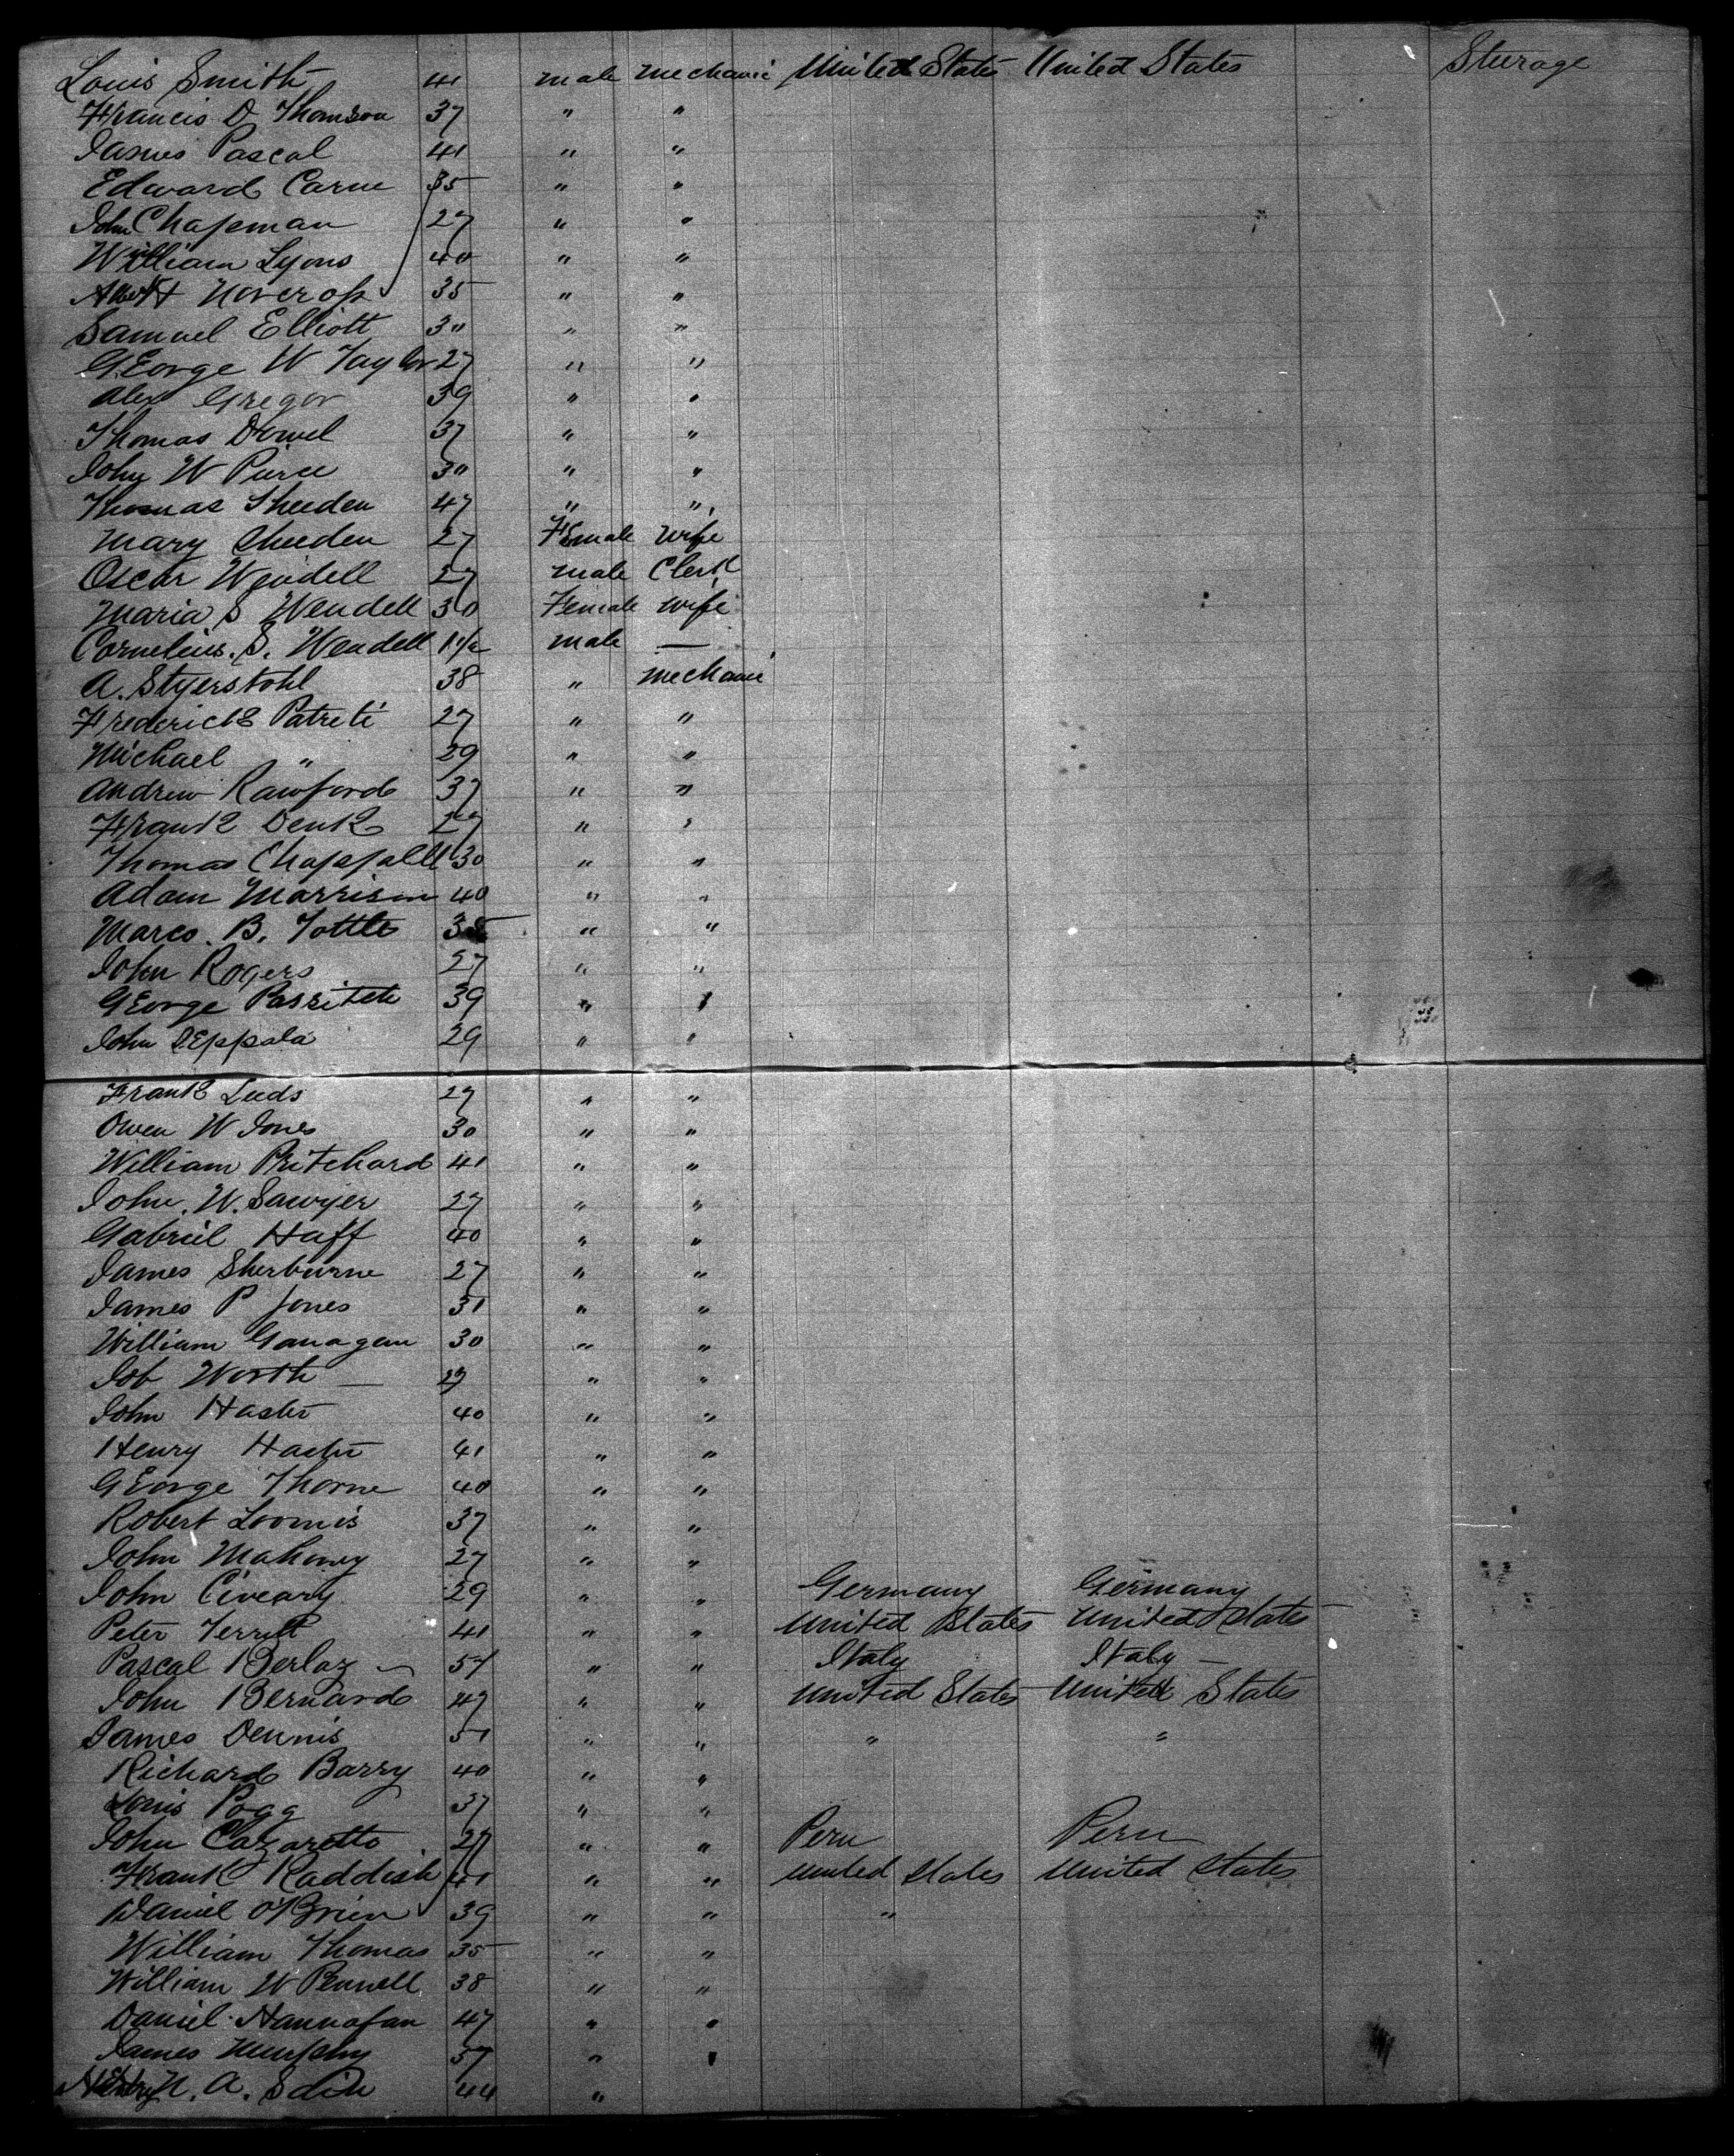 Louis Smith 41 male mechanic United States United States Steerage
Francis D Thomson 37 " "
James Pascal 41 " "
Edward Carne 35 " "
John Chapman 27 " "
William Lyons 40 " "
Albert Norcross 35 " "
Samuel Elliott 30 " "
George W Taylor 27 " "
Alex Gregor 39 " "
Thomas 37 " "
John W Pierce 30 " "
Thomas Sheeden 47 " "
Mary Sheeden 27 Female Wife
Oscar Wendell 27 male Clerk
Maria S Wendell 30 Female Wife
Cornelius. S. Wendell 1 1/2 male —
A. Styerstohl 38 " mechanic
Frederick Patreti 27 " "
Michael " 29 " "
Andrew Rawford 37 " "
Frank Denk 27 " "
Thomas Chappall 30 " "
Adam Morrison 40 " "
Marco. B. Tottle 35 " "
John Rogers 27 " "
George 39 " "
John 29 " "
Frank Leeds 27 " "
Owen W Jones 30 " "
William Pritchard 41 " "
John. W. Sawyer 27 " "
Gabriel Haff 40 " "
James Sherburne 27 " "
James P Jones 31 " "
William Ganagan 30 " "
Job Worth — 27 " "
John Haste 40 " "
Henry Haste 41 " "
George Thorne 40 " "
Robert Loomis 37 " "
John Mahoney 27 " "
John 29 " " Germany Germany
Peter Terrill 41 " " United States United States
Pascal Berlaz 51 " " Italy Italy —
John Bernard 47 " " United States United States
James Dennis 51 " " " "
Richard Barry 40 " "
Louis Pogg 37 " "
John Cazaretto 27 " " Peru Peru
Frank Raddish 41 " " United States United States
Daniel O'Brien 39 " " "
William Thomas 35 " "
William W Pennell 38 " "
Daniel Hannafan 47 " "
James Murphy 57 " "
N. A. 44 "